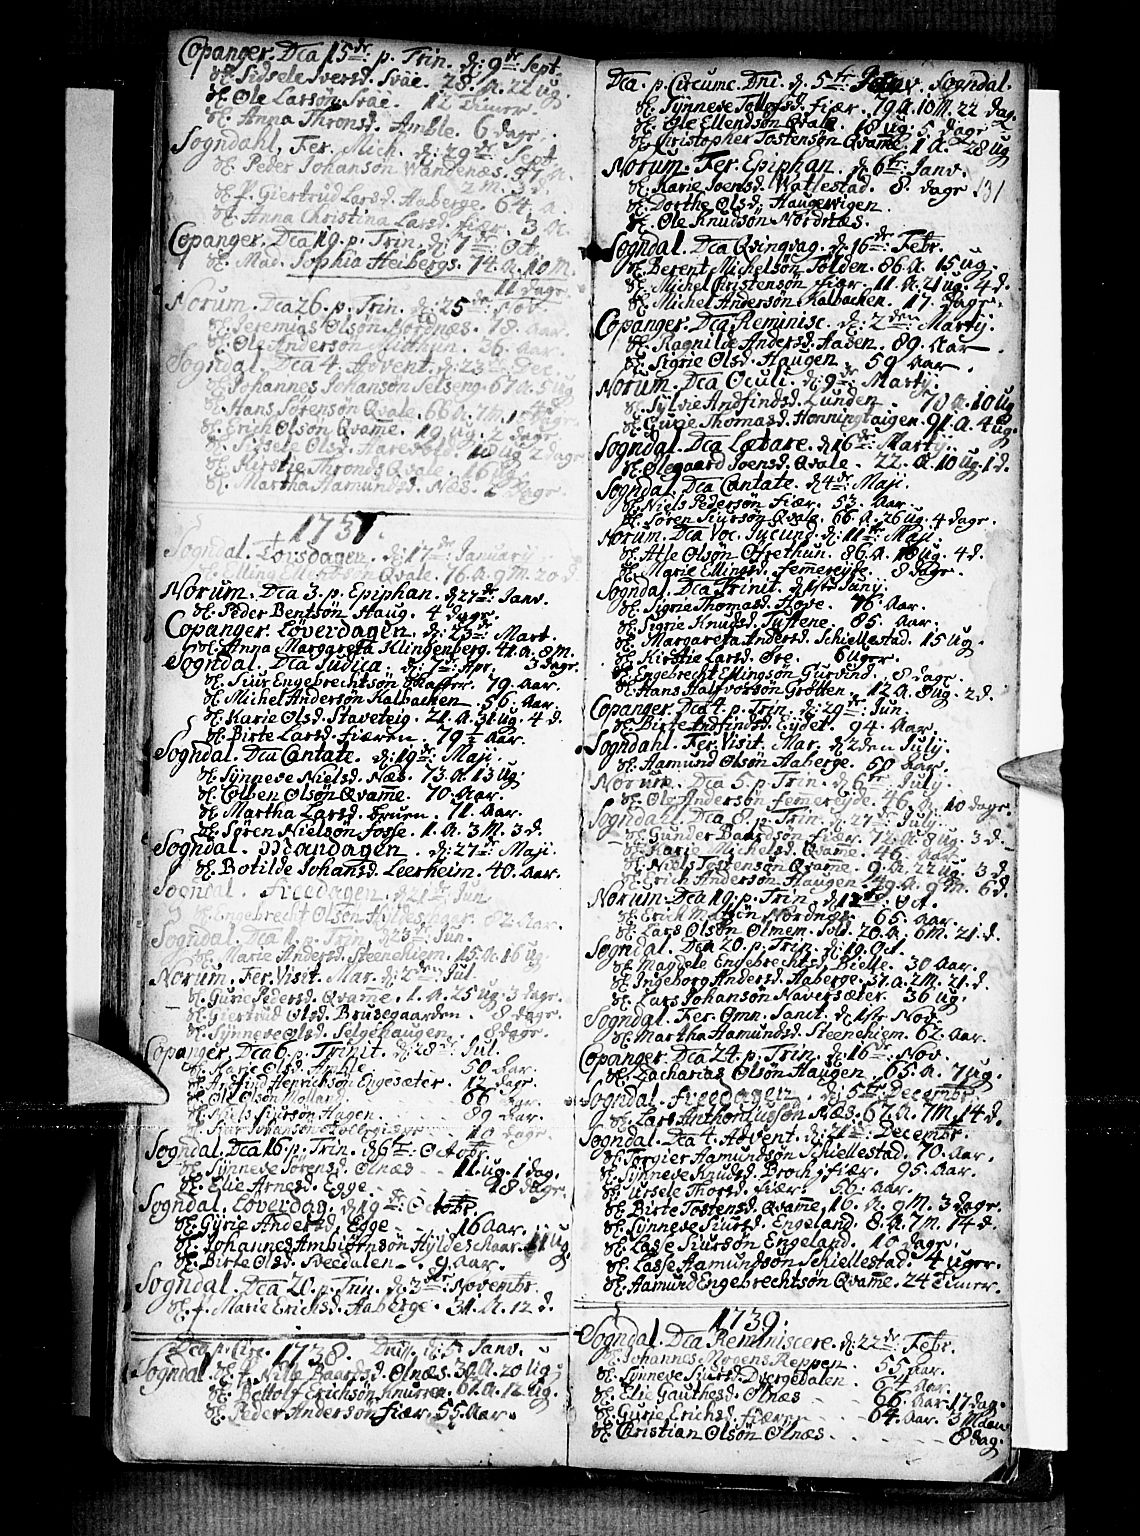 Copanger. Dca 15de p. Trin. d: 9de Sept.
Sidsele Iversd. Svåe. 28. A. 22 ug.
Ole Larsøn Svåe. 12 Timer.
Anna Thronsd. Amble. 6 dage.
Sogndahl, Fer. Mich. d: 29de Sept.
Peder Johansøn Wandenæs. 57. A.
2 M. 3 d.
f. Giertrud Larsd. Aaberge. 64. A.
Anna Christina Larsd. fiær. 3 A.
Copanger. Dca 19. p. Trin. d: 7de Oct.
Mad. Sophia Heibergs. 74. A. 10 M.
11 dage.
Norum. Dca 26. p. Trin. d: 25de Nov.
Jeremias Olsøn Nordnæs. 78. Aar.
Ole Andersøn 36. Aar.
Sogndal. Dca 4. Advent. d: 23 Dec.
Johannes Johansøn Selseng. 67 A. 5 ug
Hans Sørensøn Qvale. 66 A. 7 M. 1
Erich Olsøn Qvame. 19 ug. 2 dage.
Sidsele Olsd. 10 ug 2 dage
Kirstie Thronds Qvale. 16
Martha Aamundsd. Næs. 6 dage.
1737.
Sogndal. Torsdagen. d: 17de Januarij
Qvale. 76. A. 9 M. 20 d.
Norum. Dca 3. p. Epiphan. d: 27de Janv.
Peder Bentsøn Haug. 4 dage.
Copanger. Løverdagen. d: 23de Mart.
Anna Margareta Klingenberg. 41. A. 8 M.
Sogndal. Dca Judica. d: 7de Apr. 3 dage.
Siur Engebrechtsøn 79. Aar.
Michel Andersøn Kalbachen 56. Aar.
Karie Olsd. Staveteig. 21. A. 31 ug. 4 d.
Birte Larsd. fiæren. 79½ Aar.
Sogndal. Dca Cantate. d: 19de Maji.
Synneve Nielsd. Næs. 73. A. 13 ug.
Colben Olsøn Qvame. 70. Aar.
Martha Larsd. bruen. 71. Aar.
Søren Nielsøn fosse. 1. A. 3 M. 3 d.
Sogndal. Mandagen. d: 27de Maji.
Botilde Johansd. Leerheim. 40. Aar.
Sogndal. freedagen. d: 21de Jun.
Engebrecht Olsøn Hyldeschaar. 82. Aar.
Sogndal. Dca 1. p. Trin. d: 23de Jun.
Marie Andersd. Steenehiem. 15. A. 16 ug.
Norum. Fer. Visit. Mar. d: 2den Jul.
Gurie Pedersd. Qvame. 1. A. 25 ug. 3 dage.
Giertrud Olsd. Brusegaarden. 8 dage.
Synneve Olsd. Selgehaugen. 8 dage.
Copanger. Dca 6. p. Trinit. d: 28de Jul.
Marie Olsd. Amble. 50 Aar.
Arnfind Henrichsøn Engesæter. 12 dage.
Ole Olsøn Molland. 66 Aar.
Niels Siursøn Hagen. 89 Aar.
Siur Johansøn 10 dage.
Sogndal. Dca 16. p. Trin. d: 6te Octobr.
Synneve Sørensd. Ølnæs 11 ug. 1 dag.
Elie Arnesd. Egge. 18 dage.
Sogndal. Løverdag. d: 19de Octobr.
Gyrie Andersd. Egge. 16 Aar.
Johannes Ambiørnsøn Hyldeschaar. 11 ug
Birte Olsd. Sveedalen. 9 Aar.
Sogndal. Dca 20. p. Trin. d: 3de Novembr.
f. Marie Erichsd. Aaberge. 31. A. 12 d.
1738.
Dca p. Circ. Dni. d: 5 Janv.
Sogndal f. Nille Baardsd. Ølnæs. 30. A. 20 ug
Bettolf Erichsøn Knurren. 61. A. 12 ug.
Peder Andersøn fiær. 55. Aar.
Dca. p. Circumc. Dni. d. 5te Janv. Sogndal.
Synneve Tollefsd. fiær. 79. A. 10 M. 22 dag.
Ole Ellendsøn Qvale. 18 ug. 5 dage
Christopher Tostensøn Qvame. 1 A. 28 ug
Norum. Fer. Epiphan. d: 6te Janv.
Karie Joensd. Wattestad. 8. dage 131
Dorthe Olsd. Haugewigen.
Ole Knudsøn Nordnæs.
Sogndal. Dca Qvinqvag. d: 16de Febr.
Berent Michelsøn Tolden. 86. A. 15 ug.
Michel Christensøn fiær. 11. A. 21 ug. 4 d.
Michel Andersøn Kalbachen. 17. dage.
Copanger. Dca Reminisc. d: 2den Martij.
Ragnilde Andersd. Haven. 89. Aar.
Sigrie Olsd. Haugen. 59 Aar.
Norum. Dca Oculi. d: 9de Martij.
Sylvie Andfindsd. Lunden. 70. A. 10 ug
Gurie Thomasd. Henningtaigen. 91. A. 4 ug.
Sogndal. Dca Lætare. d: 16de Martij.
Olegaard Joensd. Qvale. 22. A. 10 ug. 1 d.
Sogndal. Dca Cantate. d: 4de Maji.
Niels Pedersøn fiær. 53. Aar.
Søren Siursøn Qvale. 66. A. 26 ug. 4 dage.
Norum. Dca Voc. Jucund. d: 11te Maji.
Atle Olsøn Ofrethun. 86. A. 18 ug. 4 d.
Marie Ellingsd. femereyte. 8 dage.
Sogndal. Dca Trinit. d: 1ste Junij.
Signe Thomasd. Hove. 76. Aar.
Sigrie Knudsd. Tuftene. 85. Aar.
Margareta Andersd. Schiellestad. 15 ug.
Kirstie Larsd. Øre. 6 uger.
Engebrecht Ellingsøn Gurvind. 8 dage.
Hans Halfvorsøn Grøtten. 12. A. 8 ug. 2 d.
Copanger. Dca 4. p. Trin. d: 29de Jun.
Birte Andfindsd. Eydet. 94. Aar.
Sogndahl. Fer. Visit. Mar. d: 2den Julij.
Aamund Olsøn Aaberge. 50 Aar.
Norum. Dca 5. p. Trin. d: 6te Julij.
Ole Andersøn femereyde. 46. A. 10 dage.
Sogndahl. Dca 8. p. Trin. d: 27de Julij.
Gunder Baardsøn fiær. 72. A. 8 ug. 3 d.
Karie Michelsd. Qvame. 46. Aar.
Niels Tostensøn Qvame. 9. A. 22 ug. 3 d.
Erich Andersøn Haugen. 49. A. 9 M. 6 d.
Norum. Dca 19. p. Trin. d: 12te Oct.
Erich Nordnæs. 65. Aar.
Lars Olsøn Ølmem. sold. 20. A. 6 M. 21. d.
Sogndal. Dca 20. p. Trin. d: 19. Oct.
Magdele Engebrechtsd. Bielle. 30 Aar.
Ingeborg Andersd. Aaberge. 31. A. 2 M. 21. d.
Lars Johansøn Naversæter. 36 ug.
Sogndal. Fer. Omn. Sanct. d: 1ste Nov.
Martha Aamundsd. Steenehiem. 62. Aar.
Copanger. Dca 24. p. Trin. d: 16de Nov.
Zacharias Olsøn Haugen. 65. A. 7 ug.
Sogndal. freedagen. d: 5te Decembr.
Lars Anthoniusøn Næs. 67. A. 7 M. 14 d.
Sogndal. Dca 4. Advent. d: 21de Decembr.
Torgier Aamundsøn Schiellestad. 70. Aar.
Synneve Knudsd. Broch, fiær. 95. Aar.
Siursele Thorsd. fiær. 56. Aar.
Birte Tostensd. Qvame. 16. A. 9 M. 3 dage.
Synneve Siursd. Engeland. 8. A. 7 M. 14 d.
Lasse Siursøn Engeland. 10 dage.
Lasse Aamundsøn Schiellestad. 4 uger.
Aamund Engebrechtsøn Qvame. 24 Timer.
1739.
Sogndal. Dca Reminiscere. d: 22de Febr.
Johannes Mogens. Reppen. 55 Aar.
Synneve Siursd. Dvergedalen. 64 Aar.
Elie Gauthesd. Ølnæs 66. Aar. 17 dag.
Gurie Erichsd. fiær. 64. Aar. 3 Maan
8 dag.
Christian Olsøn Ølnæs